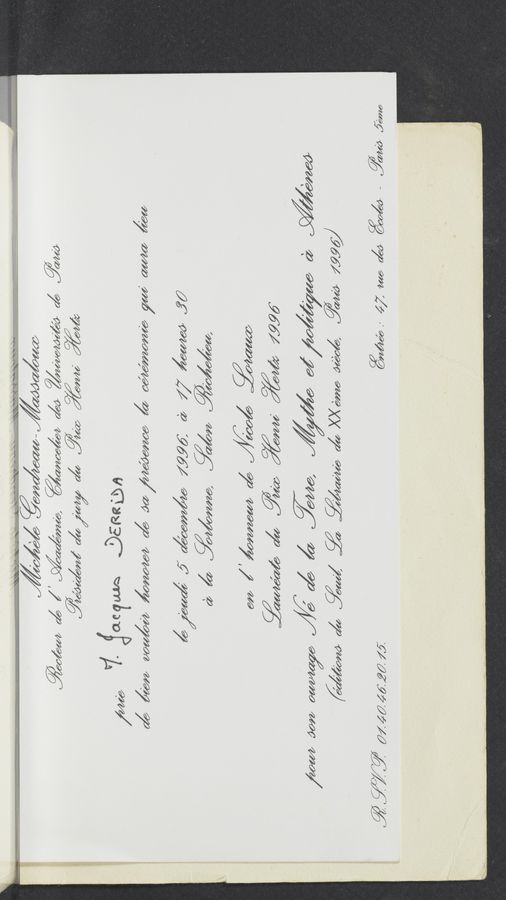 Michèle Gendreau-Massaloux
Recteur de l'Académie, Chancelier des Universités de Paris
Président du jury du Prix Henri Hertz
prie M. Jacques DERRIDA
de bien vouloir honorer de sa présence la cérémonie qui aura lieu
le jeudi 5 décembre 1996, à 17 heures 30
à la Sorbonne, Salon Richelieu,
en l'honneur de Nicole Loraux
Lauréate du Prix Henri Hertz 1996
pour son ouvrage Né de la Terre. Mythe et politique à Athènes
(éditions du Seuil, La Librairie du XXème siècle, Paris 1996)
R.S.V.P. 01.40.46.20.15. Entrée : 47, rue des Ecoles - Paris 5ème